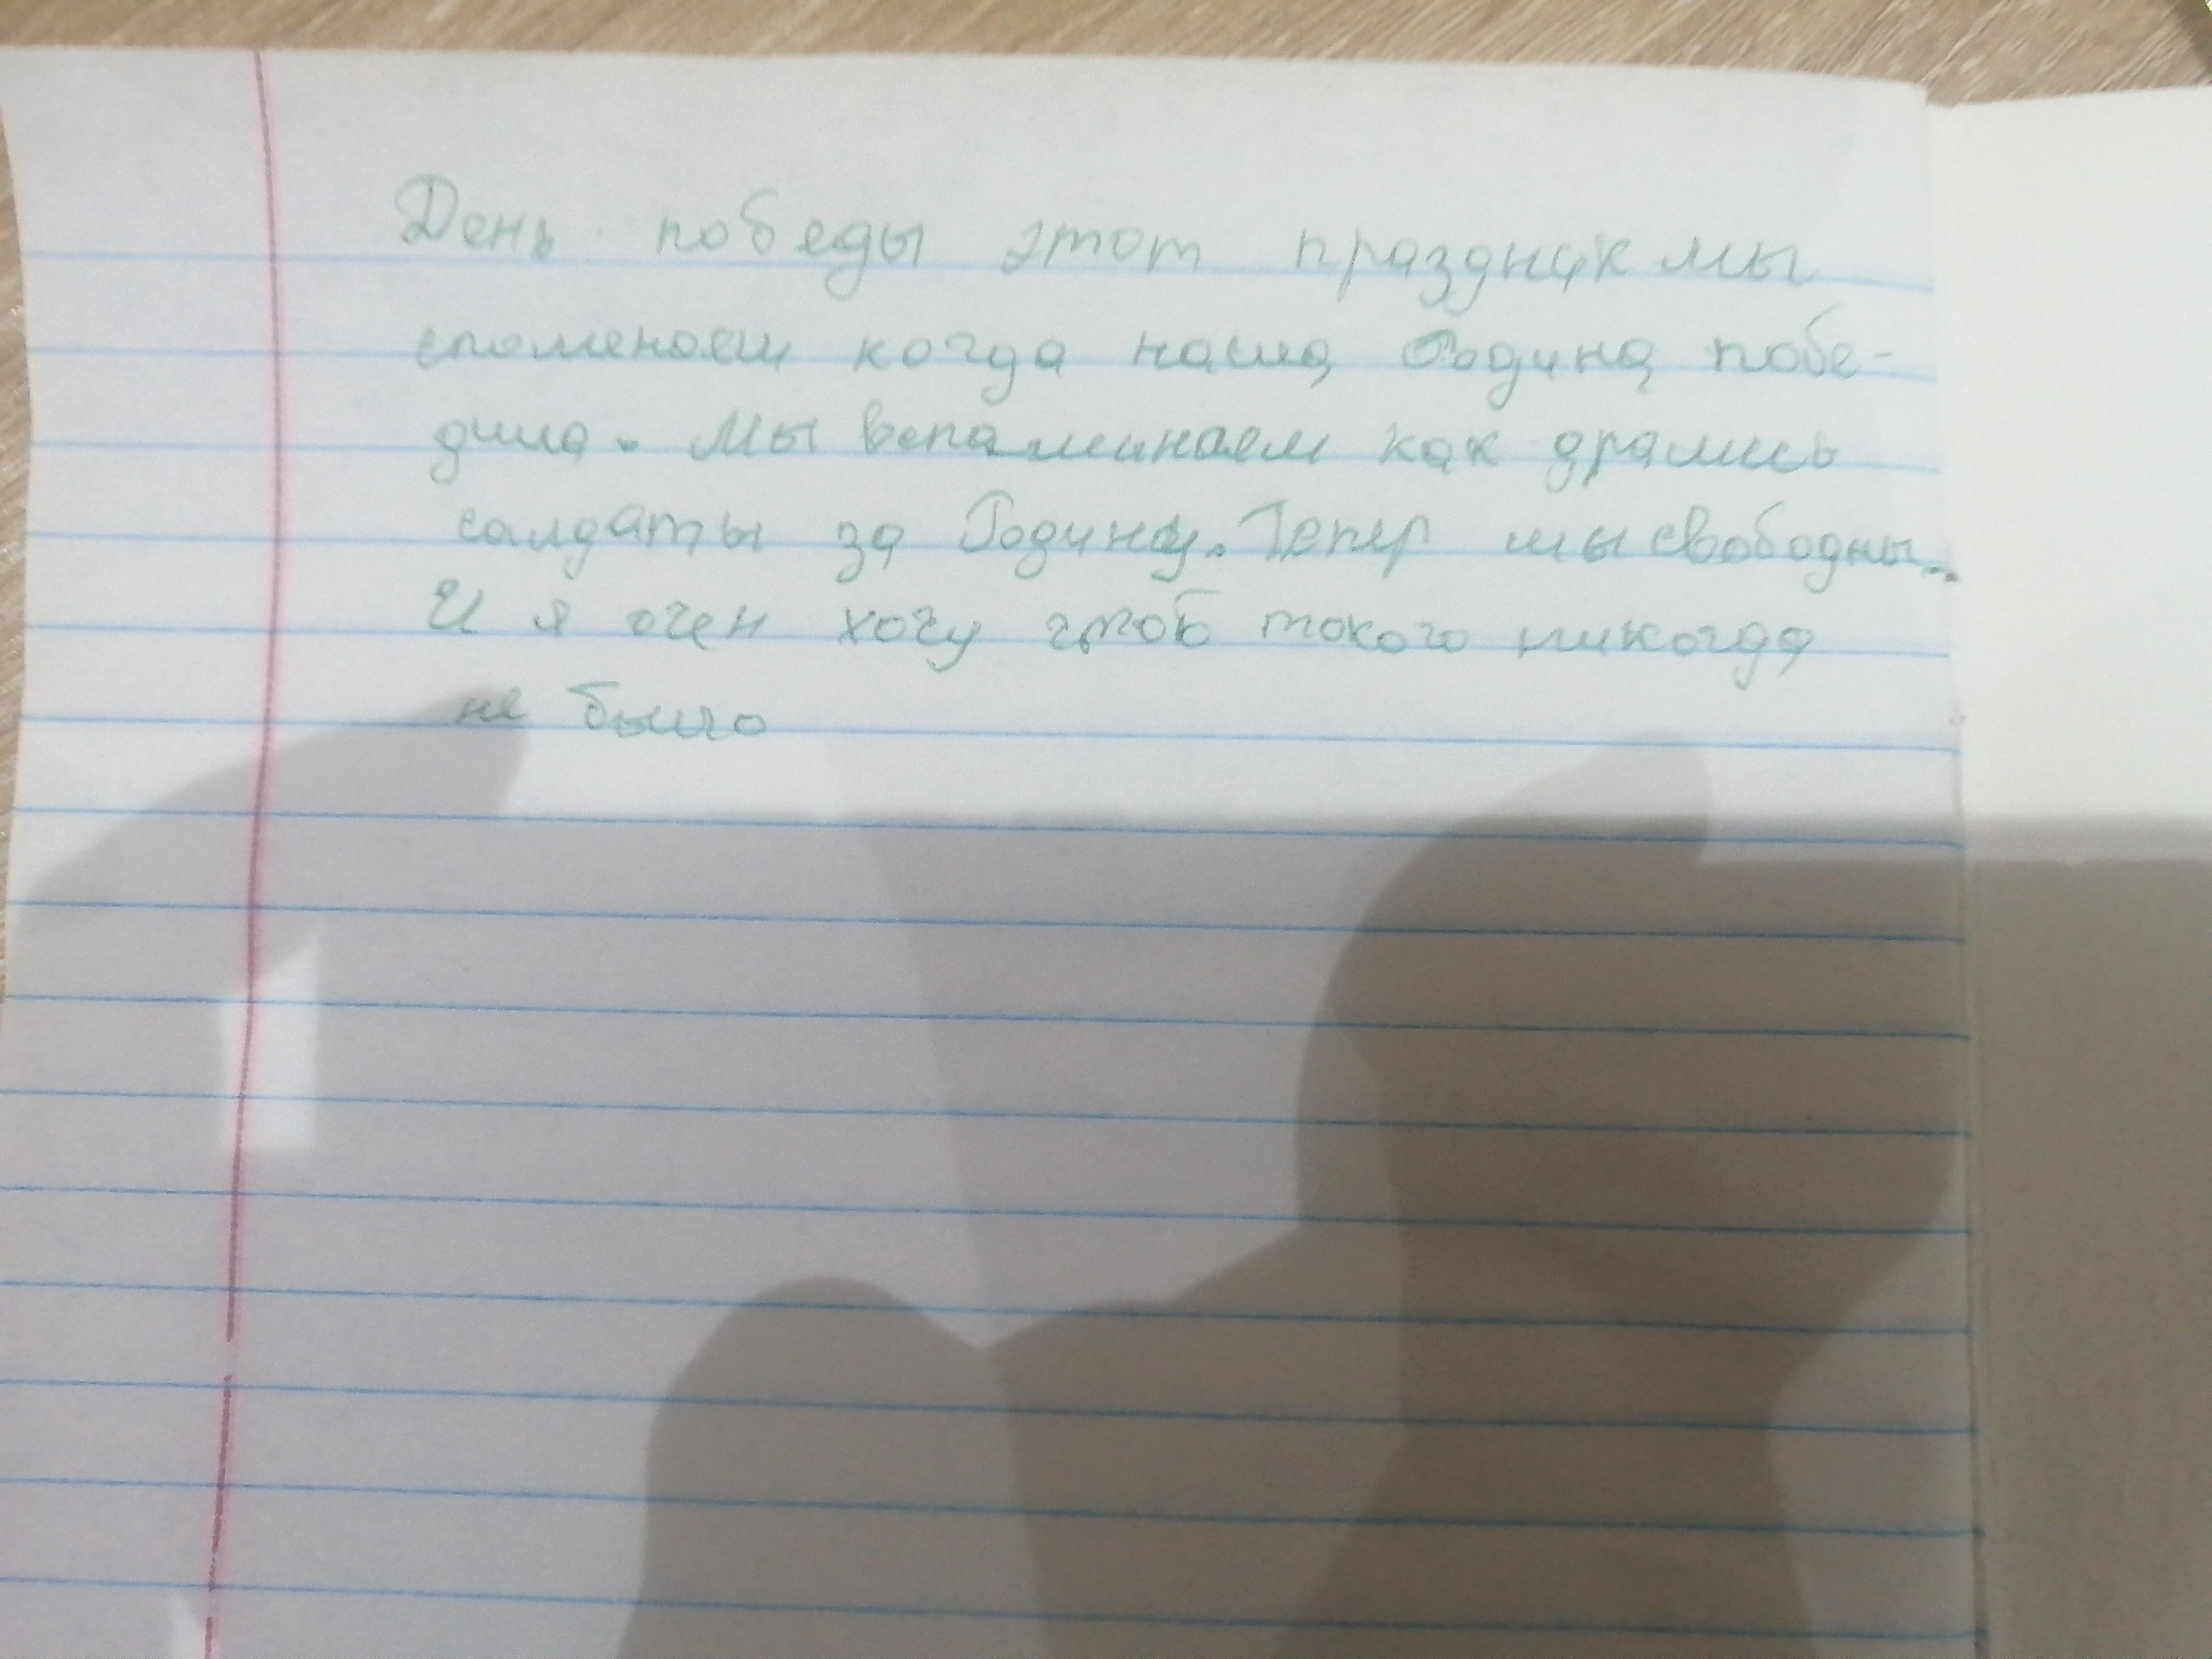 День победы этот праздник мы
споменаем когда наша Родина побе-
дила. Мы вспаминаем как дрались
салдаты за Родину. Тепер мы свободны.
И я очен хочу чтоб токого никогда
не было